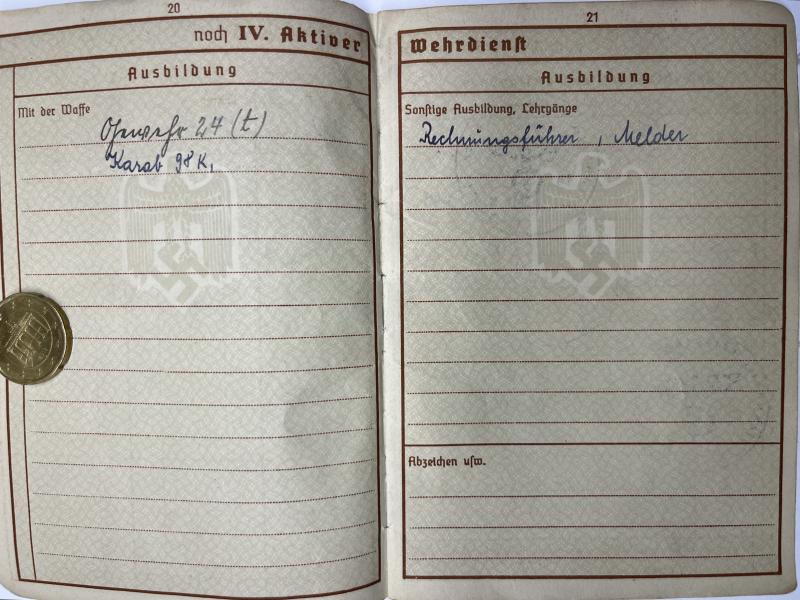 20
noch IV. Aktiver
Ausbildung
Mit der Waffe
Gewehr 24 (t)
Karab 98K,
21
Wehrdienst
Ausbildung
Sonstige Ausbildung, Lehrgänge
Rechnungsführer, Melder
Abzeichen usw.